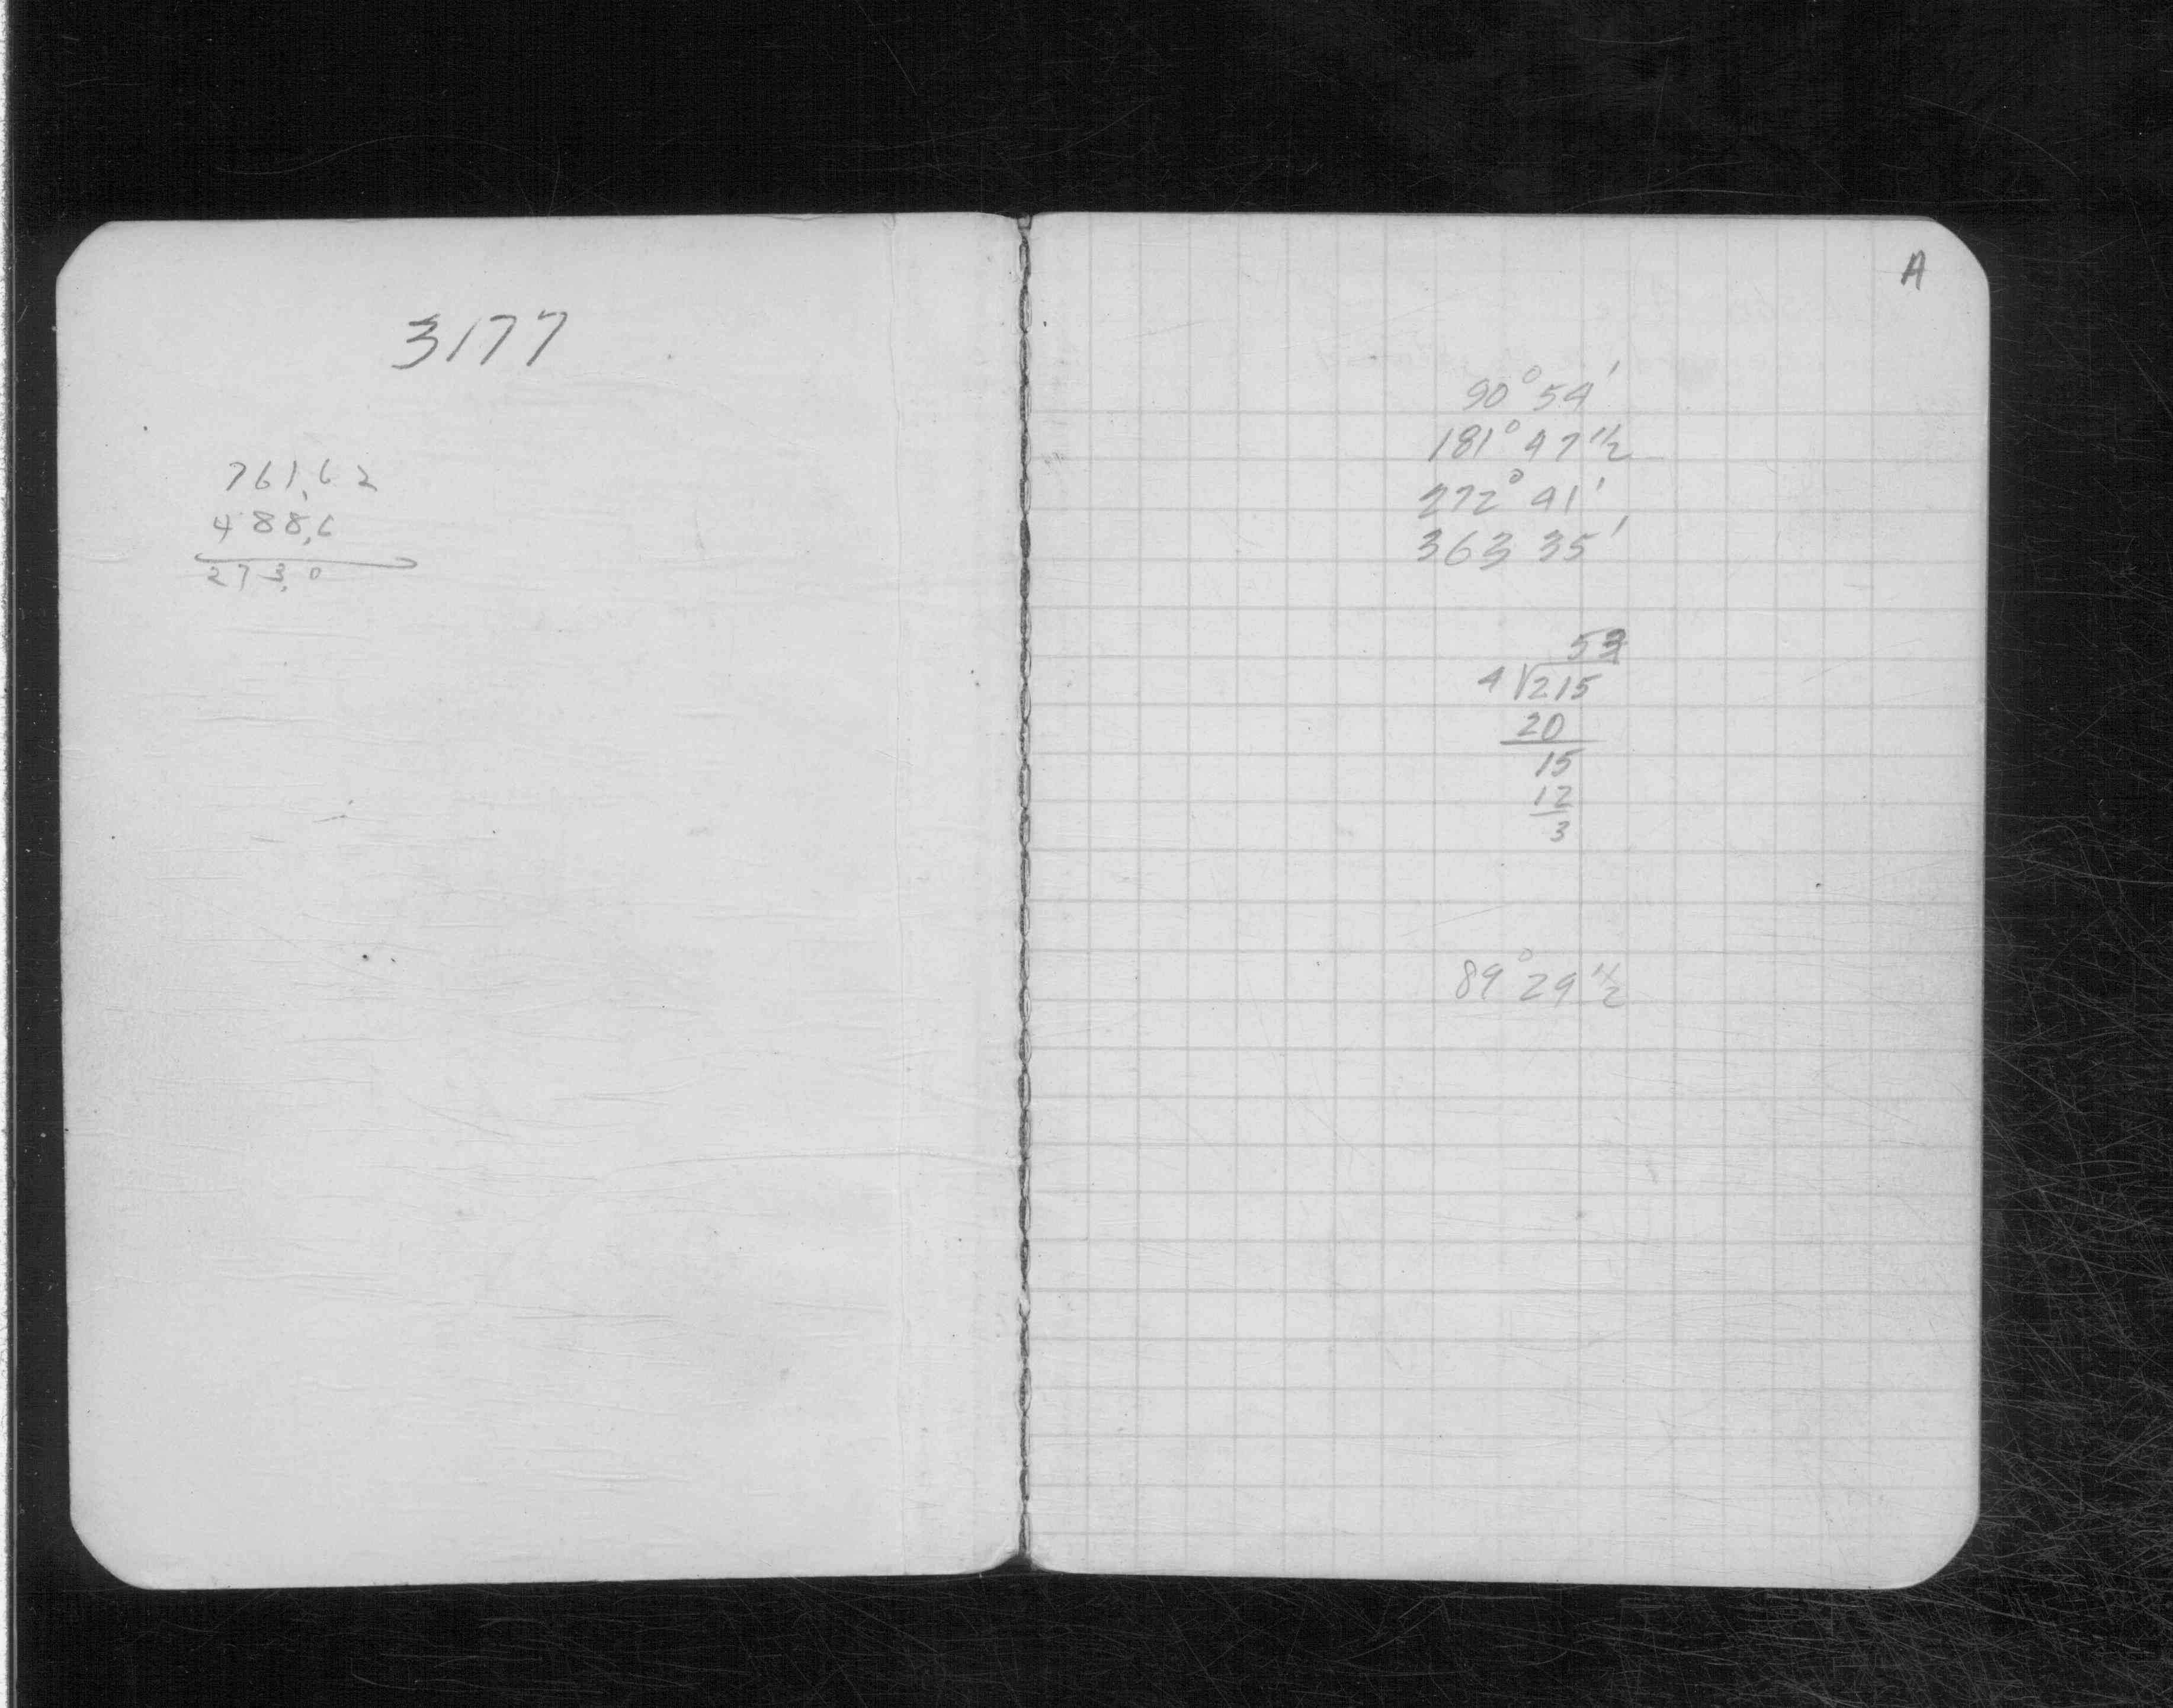 3177
761.62
488.6
273.0
A
90° 54'
181° 47' 1/2
272° 41'
363 35'
53
4 √215
20
15
12
3
89° 29' 1/2